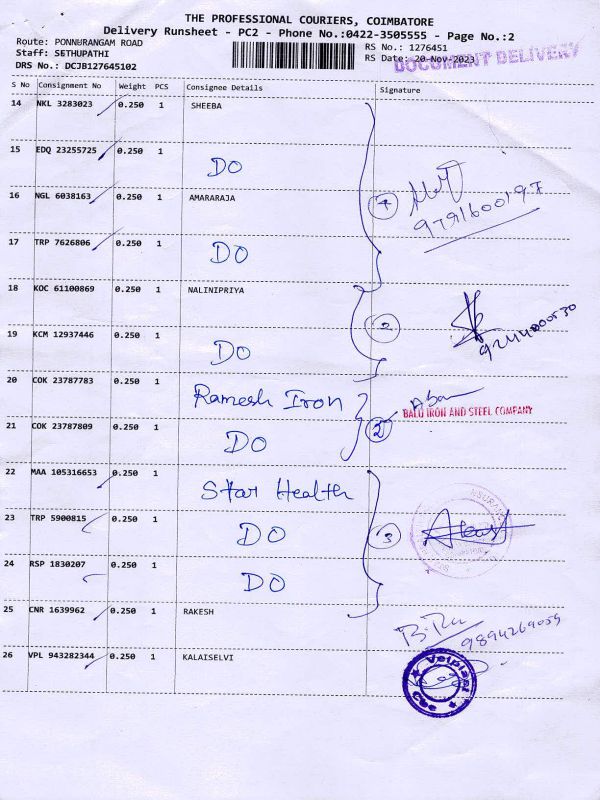 THE PROFESSIONAL COURIERS, COIMBATORE
Delivery Runsheet - PC2 - Phone No.:0422-3505555 - Page No.:2
Route: PONNURANGAM ROAD
RS No.: 1276451
Staff: SETHUPATHI
RS Date: 20-Nov-2023
DOCUMENT DELIVERY
DRS No.: DCJB127645102
S No Consignment No Weight PCS Consignee Details Signature
14 NKL 3283023 0.250 1 SHEEBA
15 EDQ 23255725 0.250 1 DO
16 NGL 6038163 0.250 1 AMARARAJA
4
9791600197
17 TRP 7626806 0.250 1 DO
18 KOC 61100869 0.250 1 NALINIPRIYA
2
19 KCM 12937446 0.250 1 DO
20 COK 23787783 0.250 1 Ramesh Iron
BALU IRON AND STEEL COMPANY
21 COK 23787809 0.250 1 DO
2
22 MAA 105316653 0.250 1 Star Health
23 TRP 5900815 0.250 1 DO
3
24 RSP 1830207 0.250 1 DO
25 CNR 1639962 0.250 1 RAKESH
9894269059
26 VPL 943282344 0.250 1 KALAISELVI
Cbe